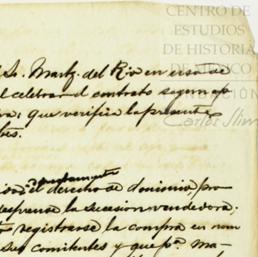 CENTRO DE
ESTUDIOS
DE HISTORIA
DE MEXICO
Carlos Slim
Sr. Martz. del Rio en uso de
el celebrar el contrato segun
que verifica la presente
el derecho de dominio, pro
desprende la sucesion vendedora;
registrarse la compra en nom
sus comitentes y que pa. ma-